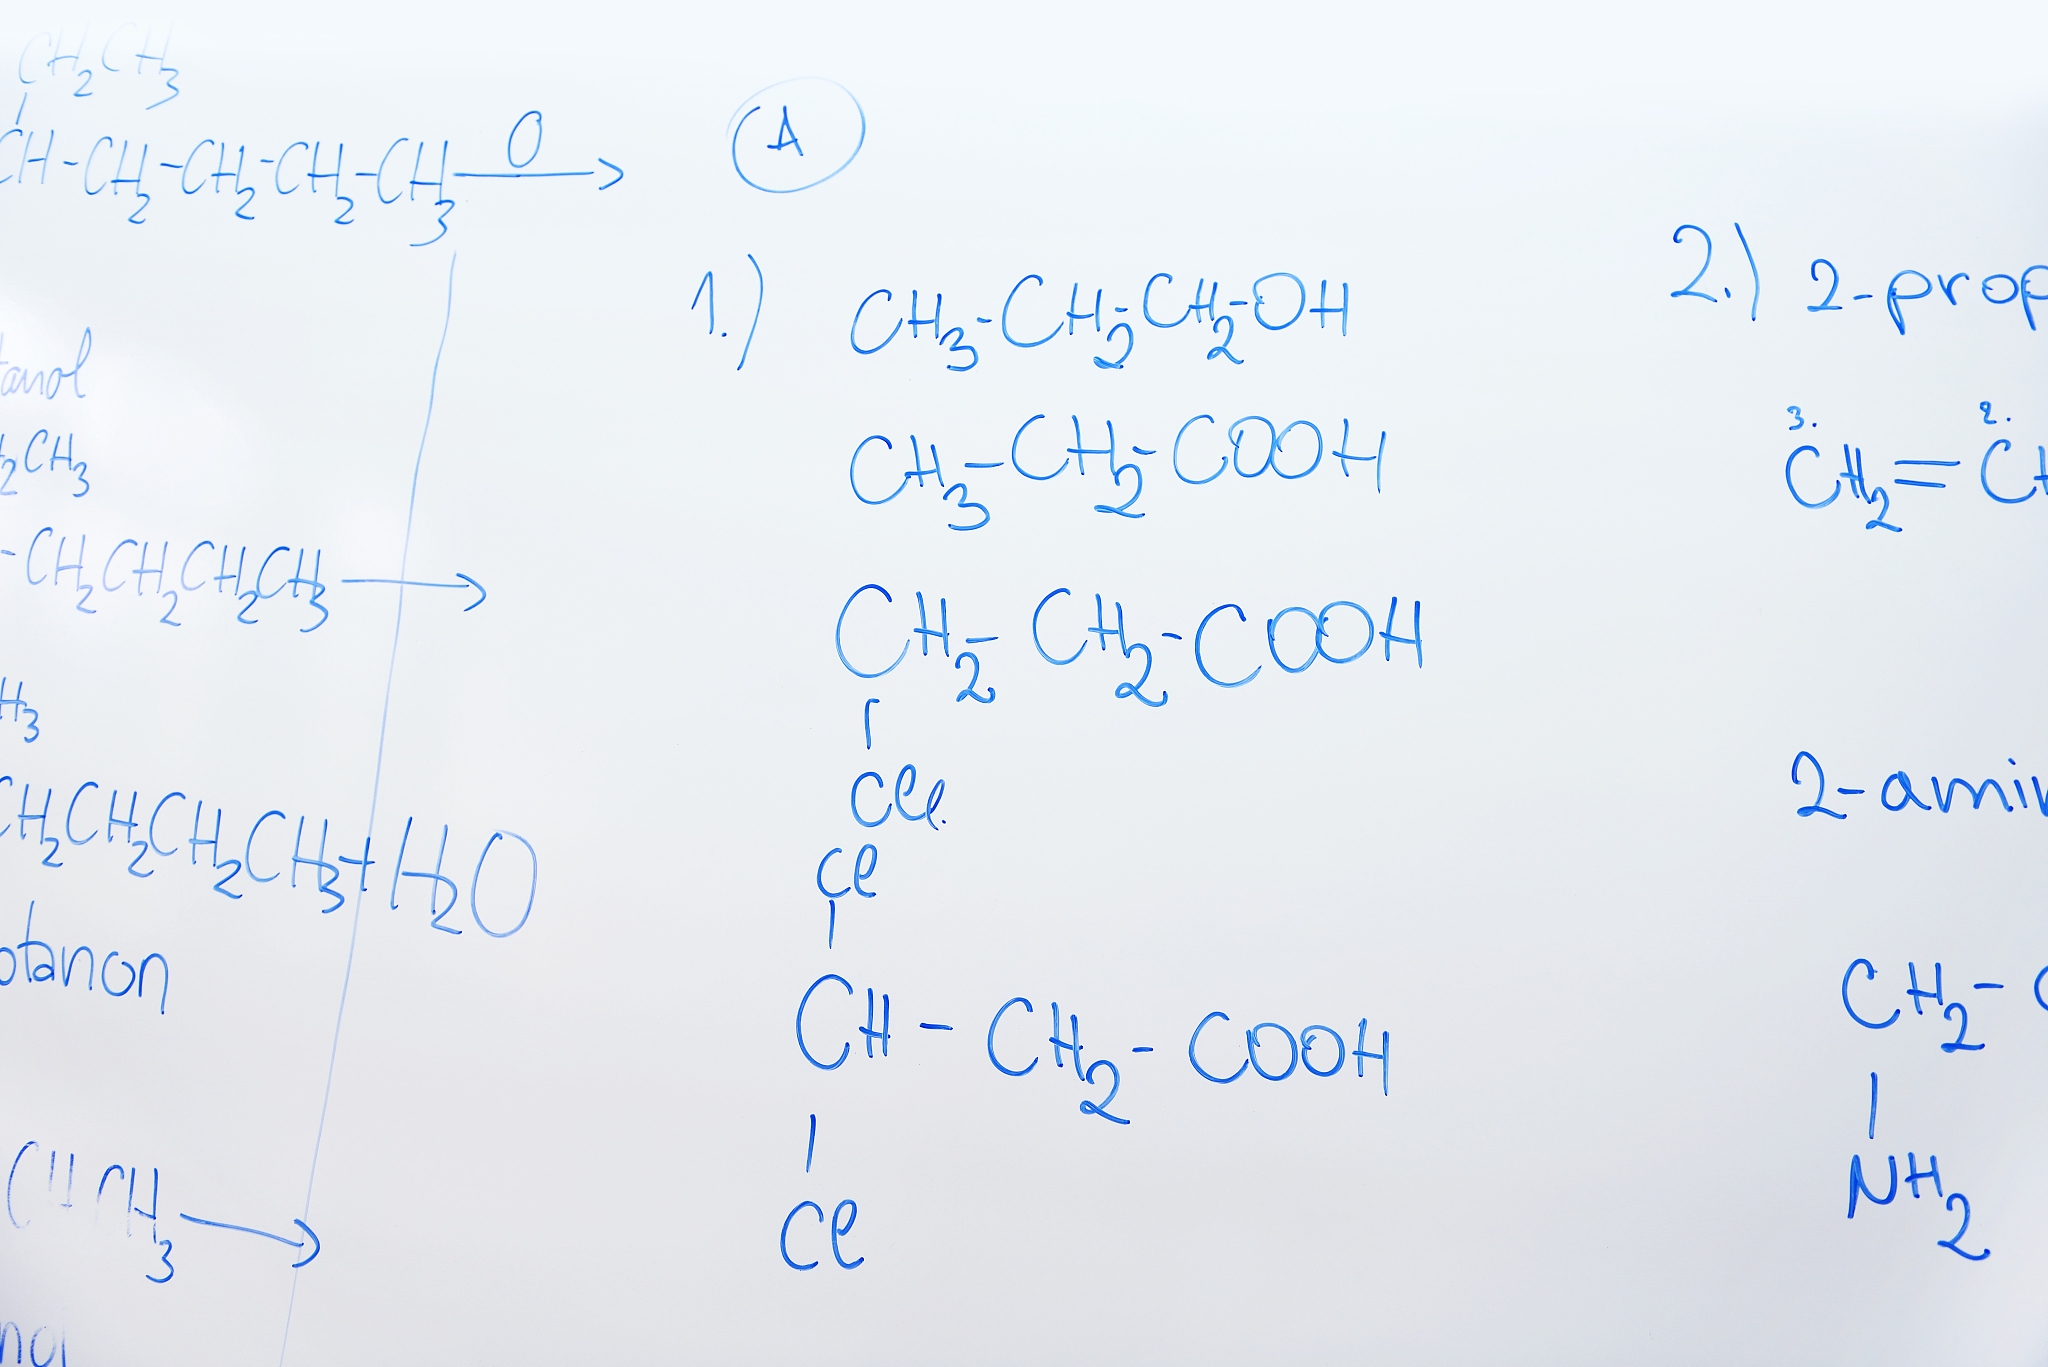 CH₂CH₃
CH-CH₂-CH₂-CH₂-CH₃ O →
tanol
₂CH₃
-CH₂CH₂CH₂CH₃ →
H₃
CH₂CH₂CH₂CH₃+H₂O
otanon
CH₃ →
nol
A
1.)
CH₃-CH₂-CH₂-OH
CH₃-CH₂-COOH
CH₂-CH₂-COOH
Cl
Cl
CH-CH₂-COOH
Cl
2.) 2-prop
3. 2.
CH₂=CH
2-amin
CH₂-C
NH₂